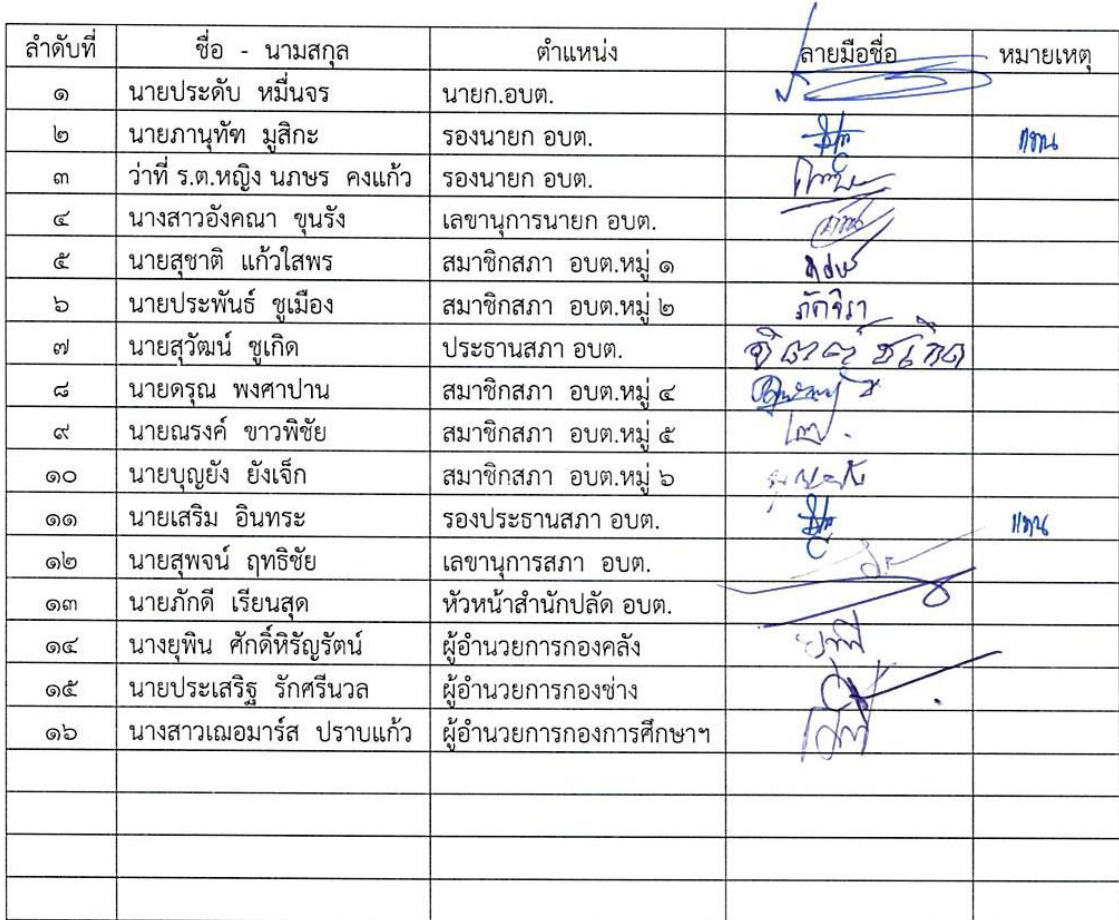 ลำดับที่ ชื่อ - นามสกุล ตำแหน่ง ลายมือชื่อ หมายเหตุ
๑ นายประดับ หมื่นจร นายก.อบต.
๒ นายภานุทัฑ มูสิกะ รองนายก อบต. แทน
๓ ว่าที่ ร.ต.หญิง นภษร คงแก้ว รองนายก อบต.
๔ นางสาวอังคณา ขุนรัง เลขานุการนายก อบต.
๕ นายสุชาติ แก้วใสพร สมาชิกสภา อบต.หมู่ ๑
๖ นายประพันธ์ ชูเมือง สมาชิกสภา อบต.หมู่ ๒ ภัคจิรา
๗ นายสุวัฒน์ ชูเกิด ประธานสภา อบต. ชูเกิด
๘ นายดรุณ พงศาปาน สมาชิกสภา อบต.หมู่ ๔
๙ นายณรงค์ ขาวพิชัย สมาชิกสภา อบต.หมู่ ๕
๑๐ นายบุญยัง ยังเจ็ก สมาชิกสภา อบต.หมู่ ๖
๑๑ นายเสริม อินทระ รองประธานสภา อบต. แทน
๑๒ นายสุพจน์ ฤทธิชัย เลขานุการสภา อบต.
๑๓ นายภักดี เรียนสุด หัวหน้าสำนักปลัด อบต.
๑๔ นางยุพิน ศักดิ์หิรัญรัตน์ ผู้อำนวยการกองคลัง
๑๕ นายประเสริฐ รักศรีนวล ผู้อำนวยการกองช่าง
๑๖ นางสาวเฌอมาร์ส ปราบแก้ว ผู้อำนวยการกองการศึกษาฯ